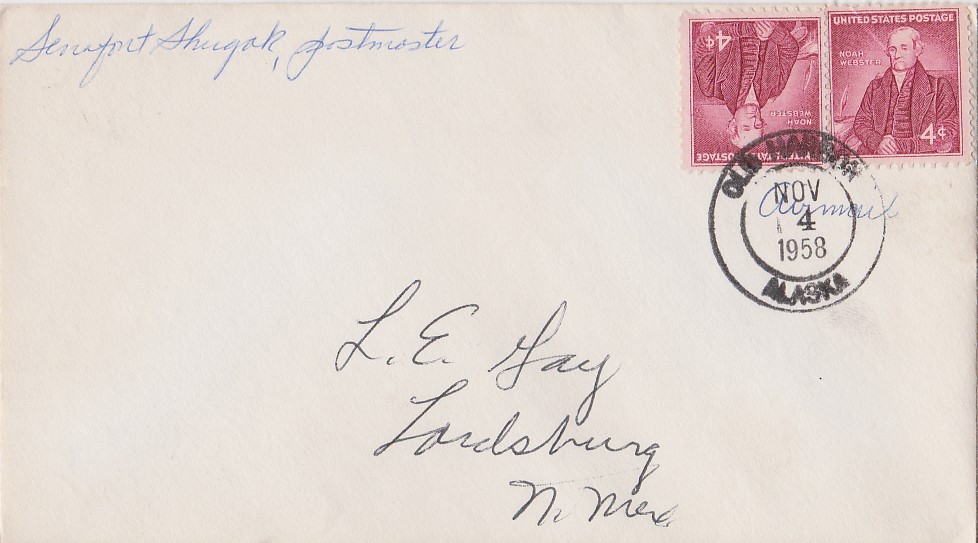 Senafont Shugak, postmaster
4¢
NOAH
WEBSTER
UNITED STATES POSTAGE
UNITED STATES POSTAGE
NOAH
WEBSTER
4¢
OLD HARBOR
NOV
4
1958
ALASKA
Airmail
L. E. Gay
Lordsburg
N. Mex